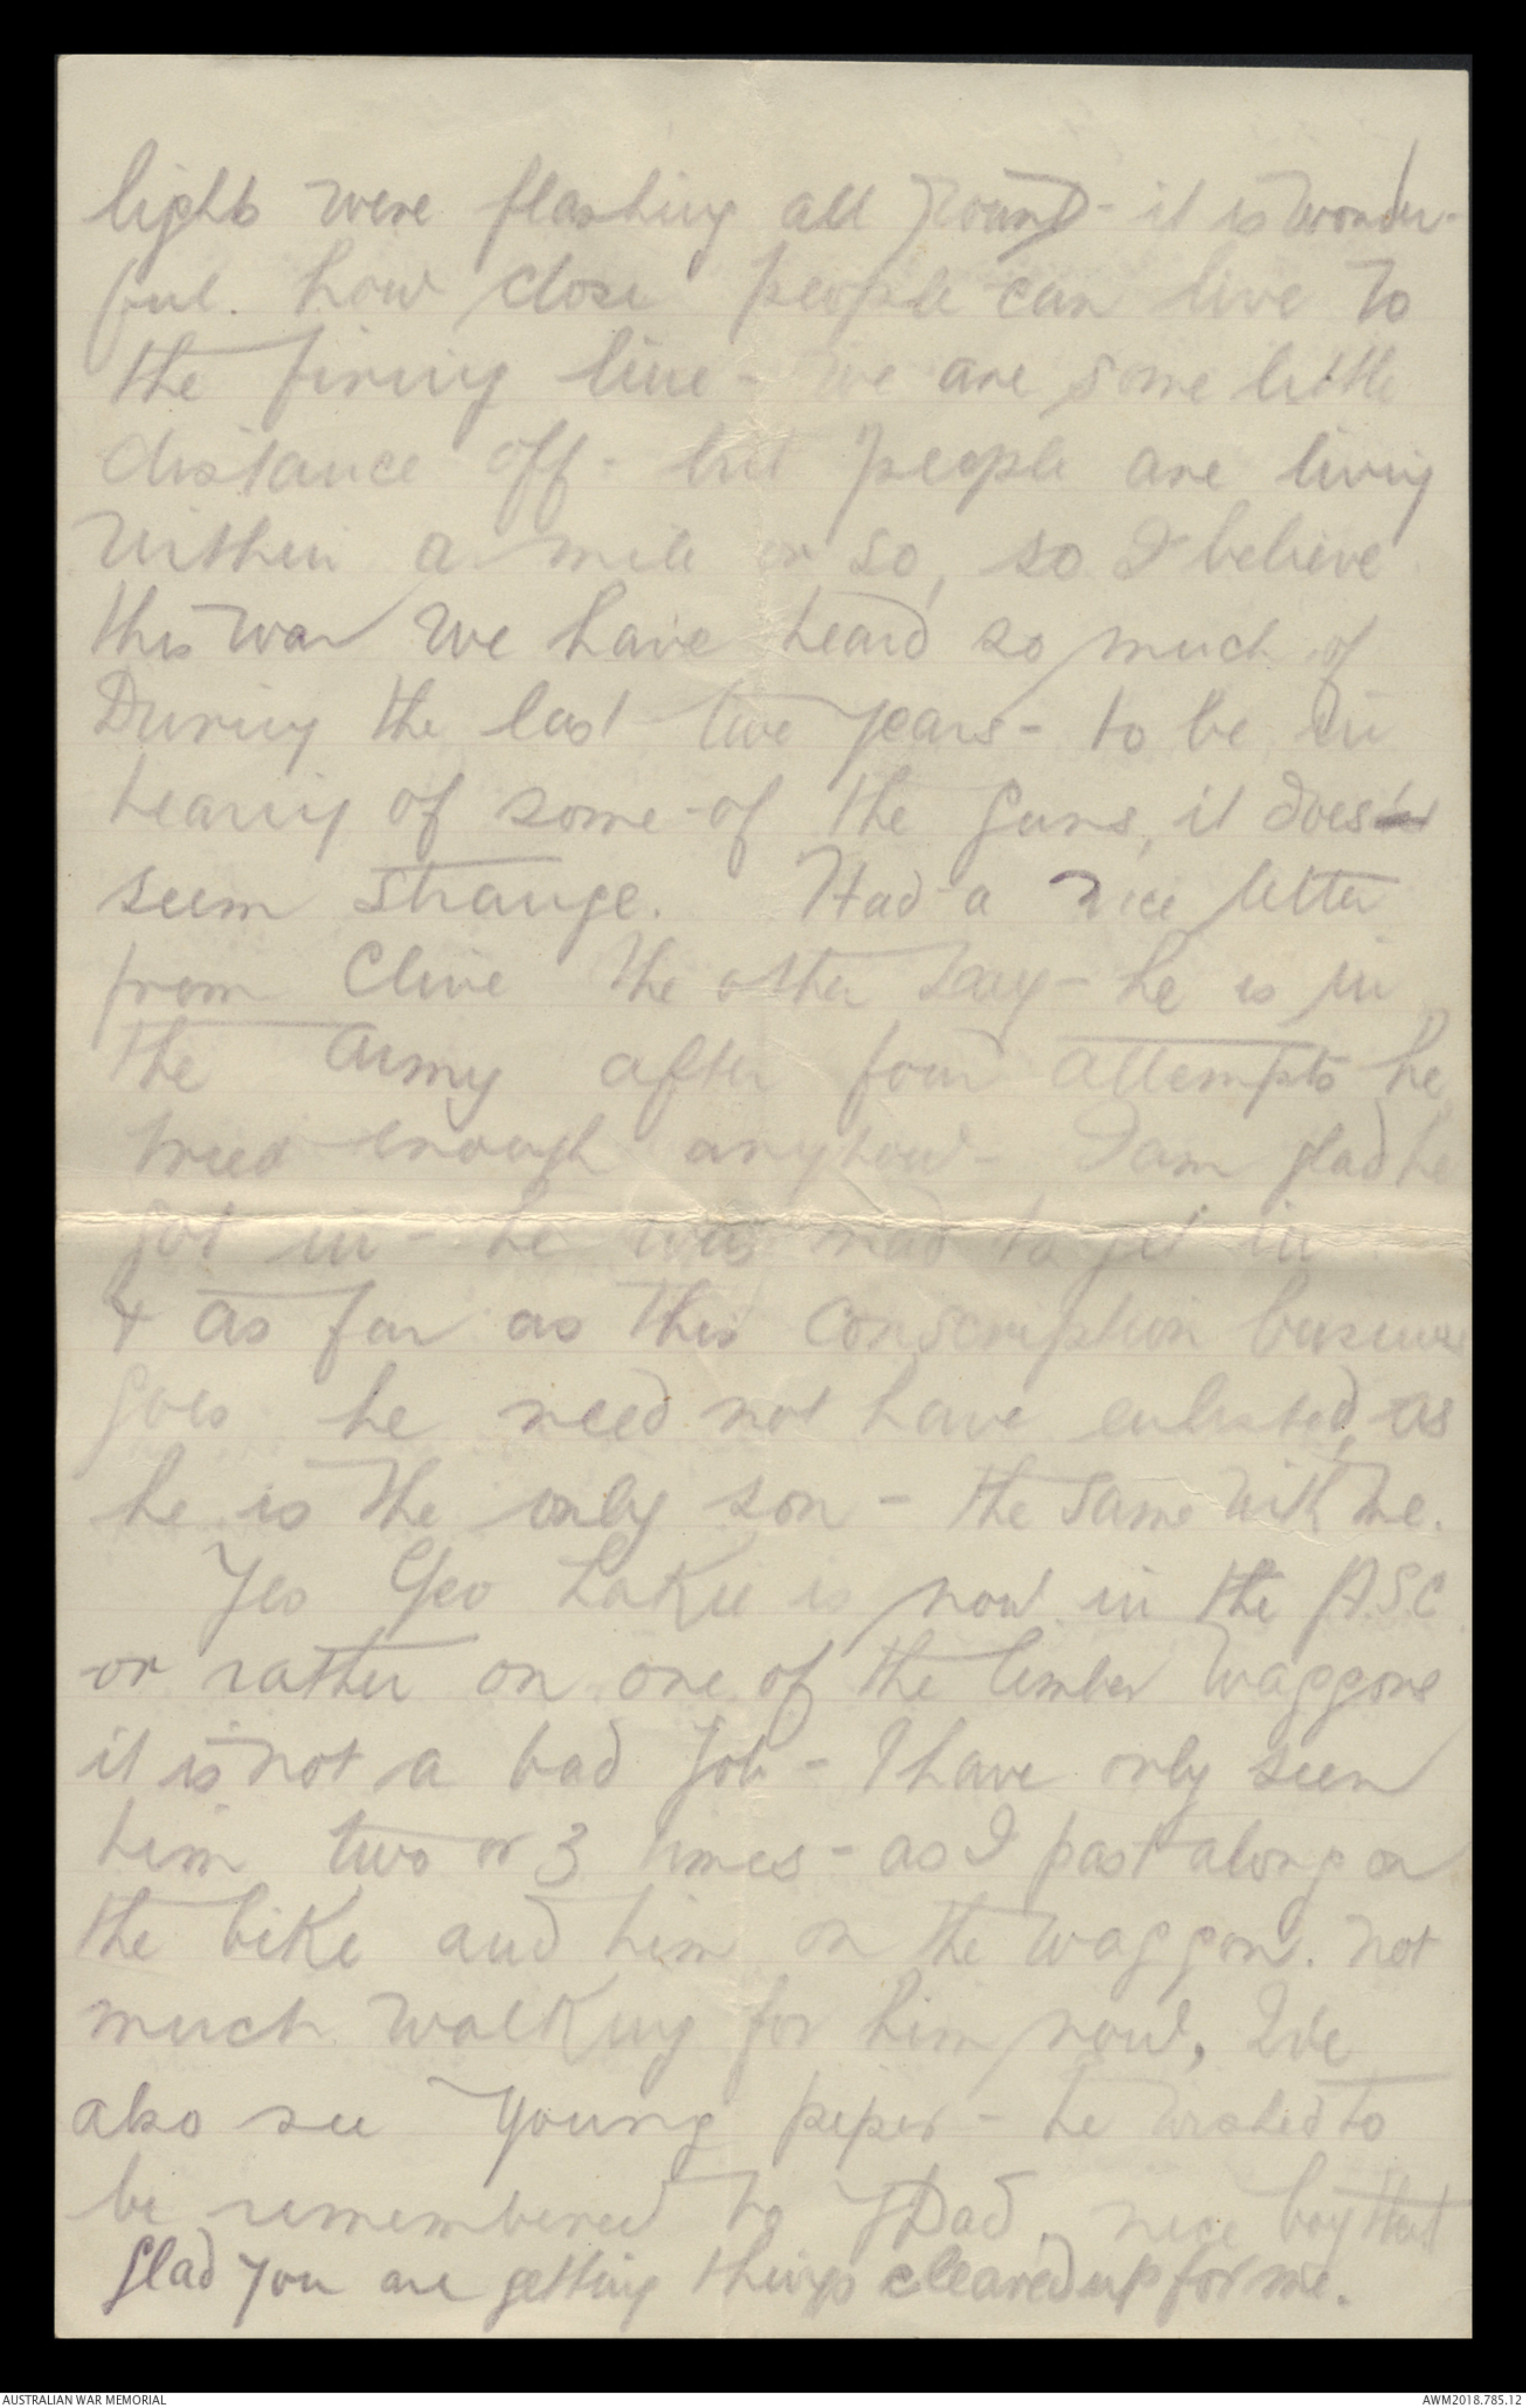 lights were flashing all round - it is wonder-
ful. how close people can live to
the firing line - we are some little
distance off - but people are living
within a mile or so, so I believe
this war we have heard so much of
During the last two years - to be in
hearing of some of the guns, it does
seem strange. Had a nice letter
from Clive the other day - he is in
the Army after four attempts he
tried enough anyhow - I am glad he
got in - he was mad to get in
& as far as this conscription business
goes he need not have enlisted, as
he is the only son - the same with me.
Yes Geo is now in the ASC
or rather on one of the limber waggons
it is not a bad job - I have only seen
him two or 3 times - as I past along on
the bike and him on the waggon. not
much walking for him now, I've
also see Young - he wished to
be remembered to Dad, nice boy that
Glad you are getting things cleared up for me.
AUSTRALIAN WAR MEMORIAL
AWM2018.785.12